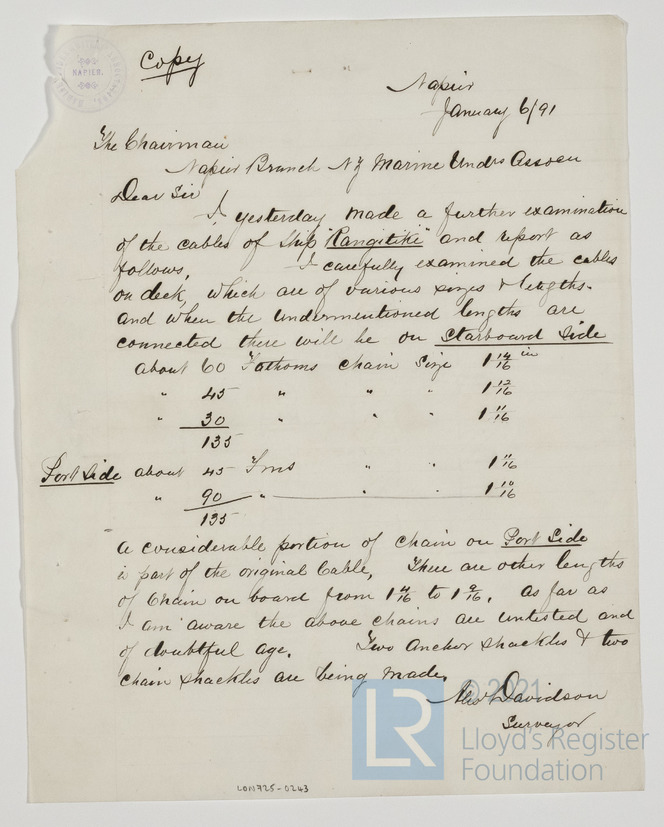 Copy
NAPIER.
Napier
January 6/91
The Chairman
Napier Branch NZ Marine Undrs Assocn
Dear Sir
I yesterday made a further examination
of the cables of Ship "Rangitiki" and report as
follows, I carefully examined the cables
on deck, which are of various sizes & lengths-
and when the undermentioned lengths are
connected there will be on Starboard Side
about 60 Fathoms chain Size 1 14/16 in
" 45 " " " 1 12/16
" 30 " " " 1 11/16
135
Port Side about 45 Fms " " 1 11/16
" 90 " " " 1 10/16
135
A considerable portion of chain on Port Side
is part of the original Cable, There are other lengths
of Chain on board from 1 4/16 to 1 9/16. As far as
I am aware the above chains are untested and
of doubtful age. Two Anchor shackles & two
chain shackles are being made.
Davidson
Surveyor
© 2021
LR Lloyd's Register
Foundation
LON725-0243